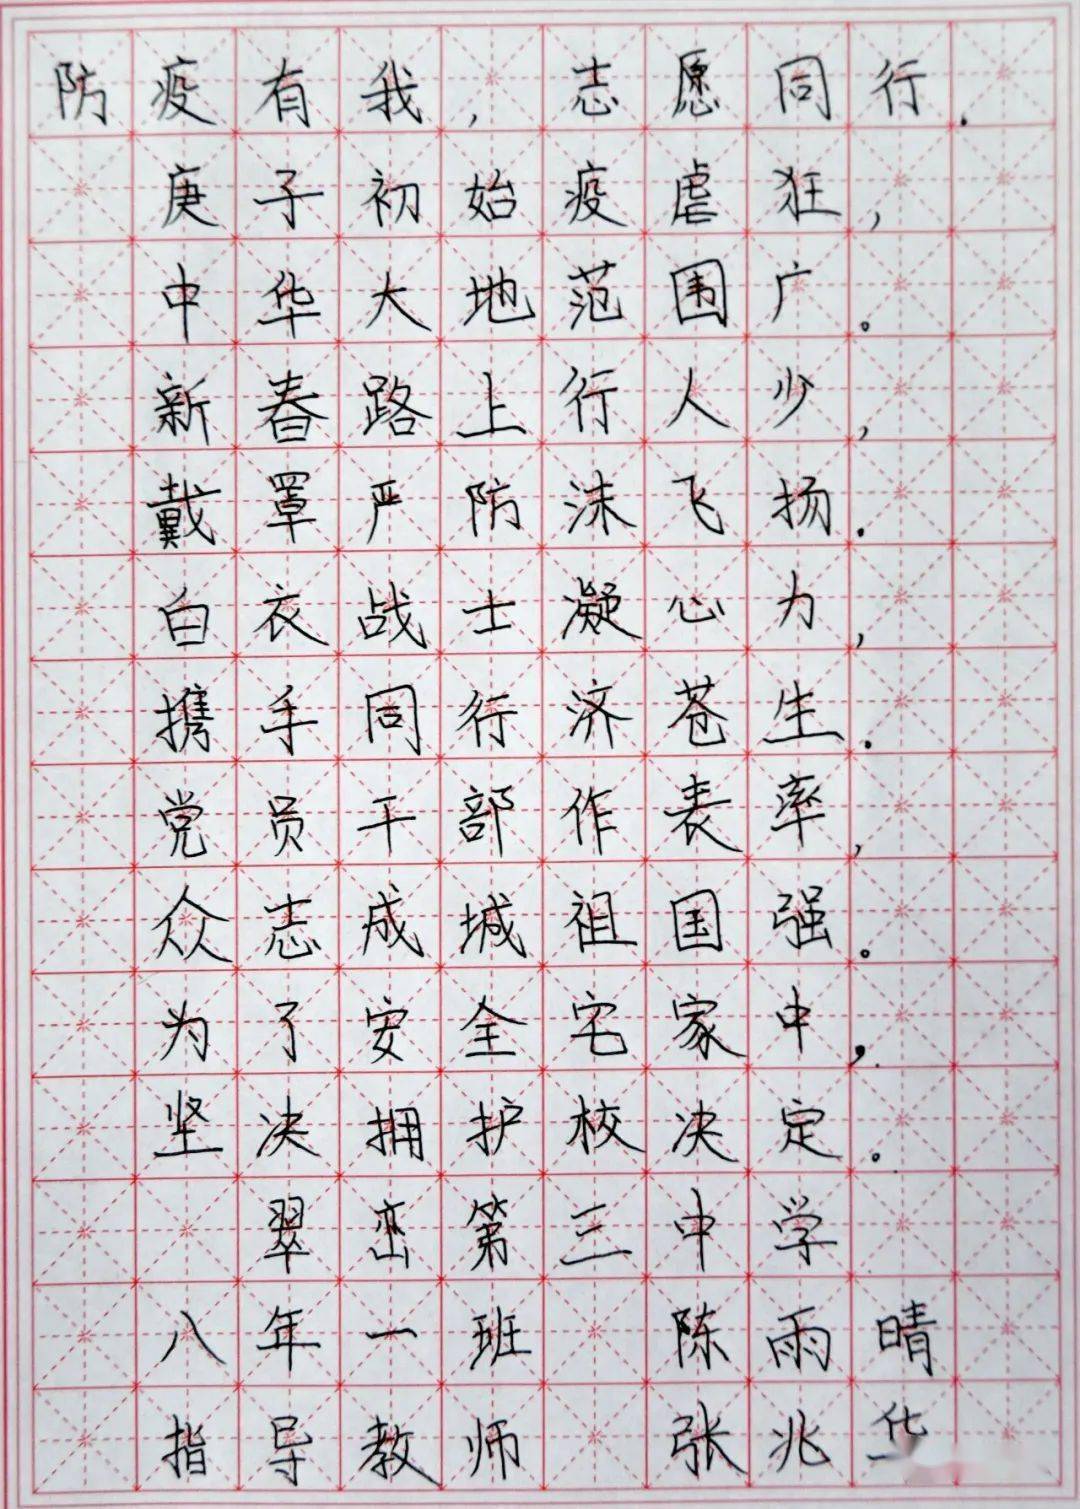 防疫有我,志愿同行.
庚子初始疫虐狂,
中华大地范围广。
新春路上行人少,
戴罩严防沫飞扬.
白衣战士凝心力,
携手同行济苍生.
党员干部作表率,
众志成城祖国强。
为了安全宅家中,
坚决拥护校决定。
翠峦第三中学
八年一班 陈雨晴
指导教师 张兆华